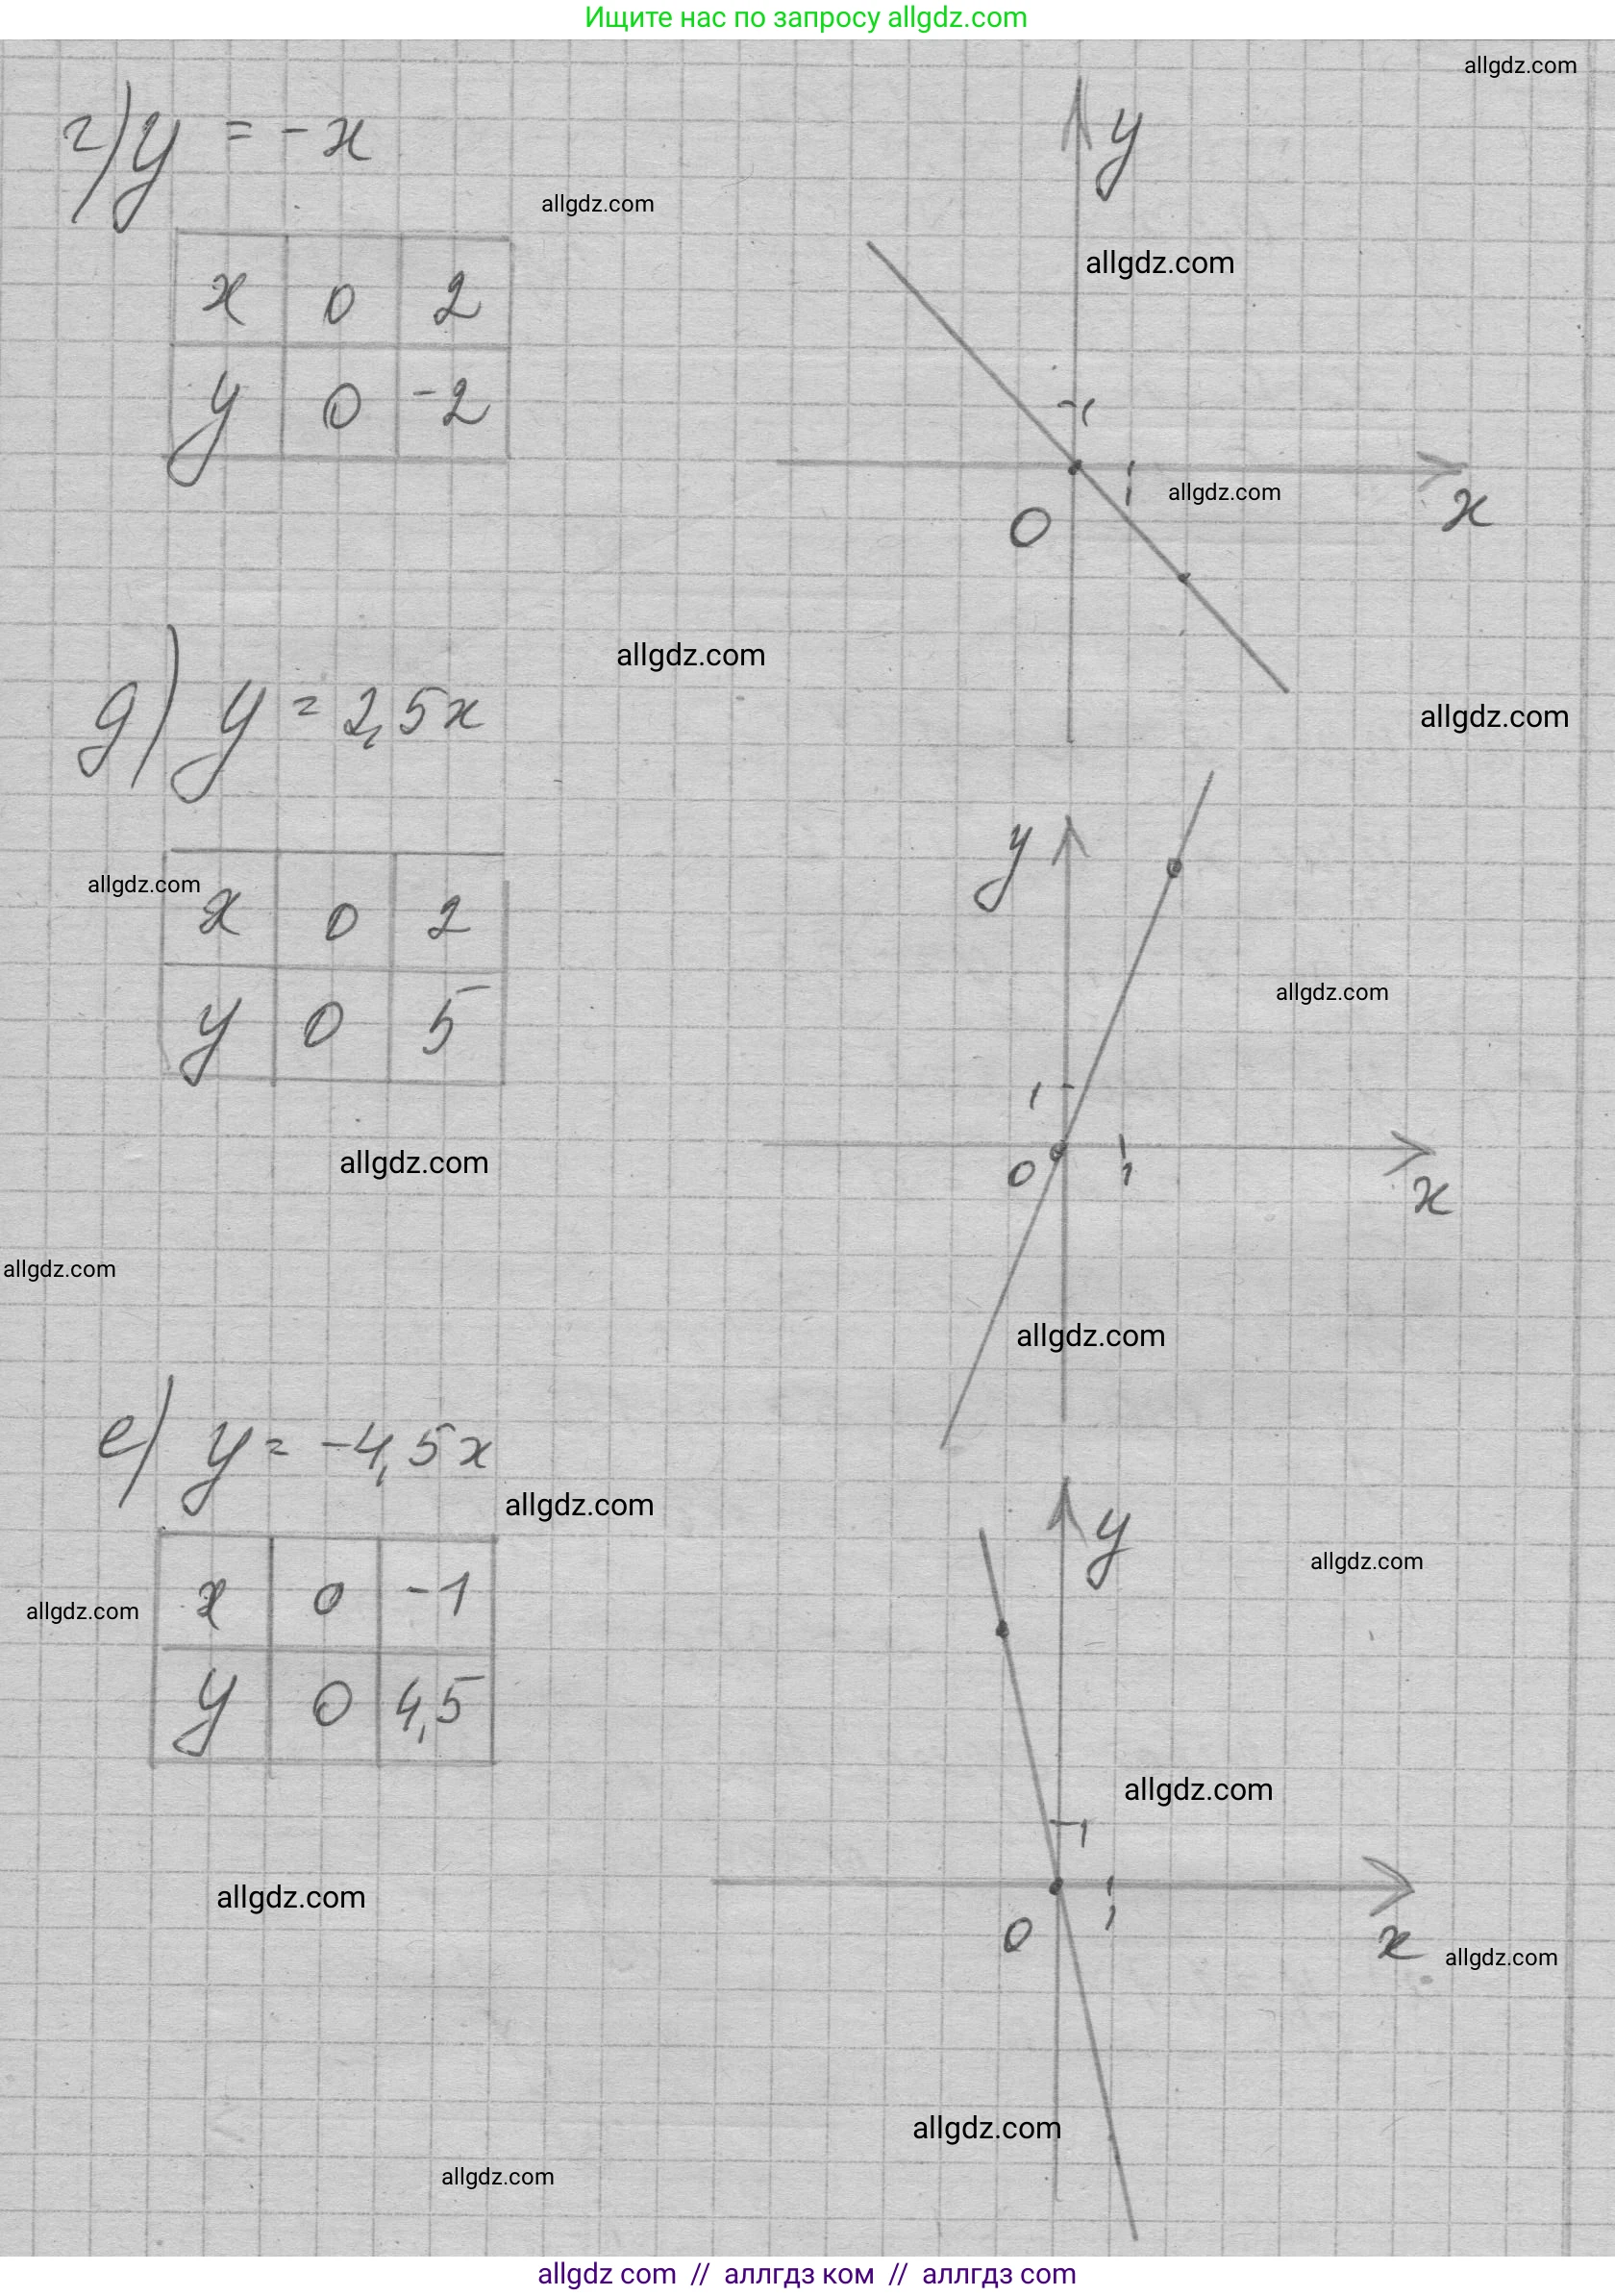 Ищите нас по запросу allgdz.com
allgdz.com
г) y = -x
y
allgdz.com
allgdz.com
x 0 2
y 0 -2
1
1
allgdz.com
0
x
allgdz.com
allgdz.com
д) y = 2,5x
y
allgdz.com
x 0 2
y 0 5
allgdz.com
1
0
1
x
allgdz.com
allgdz.com
allgdz.com
е) y = -4,5x
allgdz.com
y
allgdz.com
x 0 -1
allgdz.com
y 0 4,5
allgdz.com
1
allgdz.com
0
1
x
allgdz.com
allgdz.com
allgdz.com
allgdz com // аллгдз ком // аллгдз com